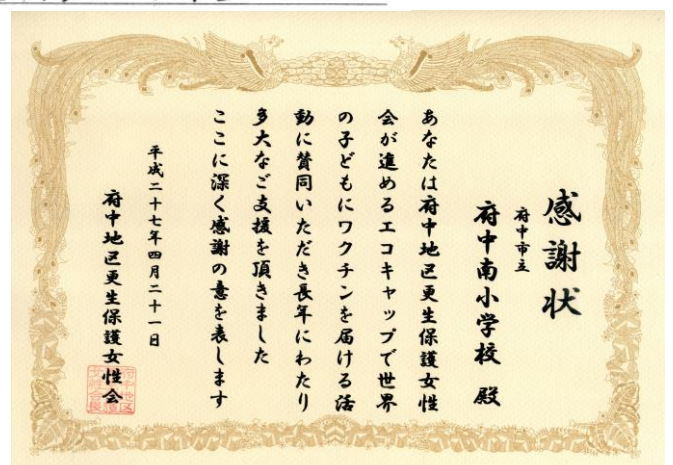 感謝状
府中市立
府中南小学校 殿
あなたは府中地区更生保護女性
会が進めるエコキャップで世界
の子どもにワクチンを届ける活
動に賛同いただき長年にわたり
多大なご支援を頂きました
ここに深く感謝の意を表します
平成二十七年四月二十一日
府中地区更生保護女性会